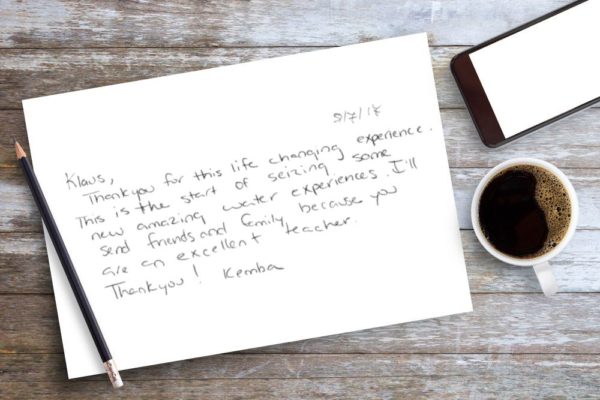 9/7/17
Klaus,
Thankyou for this life changing experience.
This is the start of seizing some
new amazing water experiences. I'll
send friends and family because you
are an excellent teacher.
Thankyou! Kemba